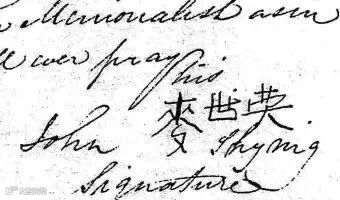 Memorialist as in
ever pray
his
John 麥世英 Shying
Signature